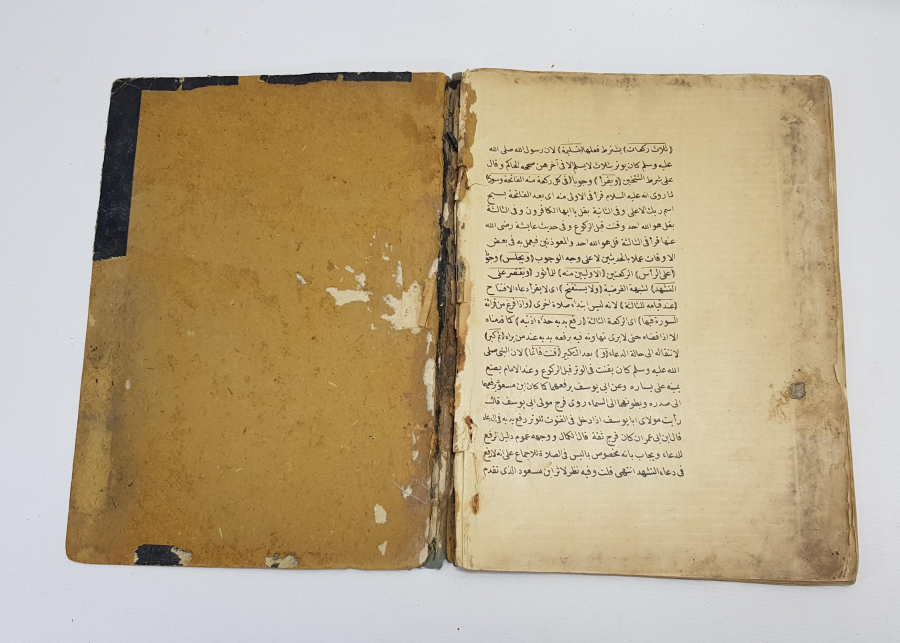 (ثلاث ركعات) بشرط فعلها (بتسليمة) لان رسول الله صلى الله
عليه وسلم كان يوتر بثلاث لا يسلم الا في آخرهن صححه الحاكم وقال
على شرط الشيخين (ويقرأ) وجوبا (في كل ركعة منه الفاتحة وسورة)
لما روى انه عليه السلام قرأ في الاولى منه اى بعد الفاتحة بسبح
اسم ربك الاعلى وفى الثانية بقل يا ايها الكافرون وفى الثالثة
بقل هو الله احد وقنت قبل الركوع وفى حديث عايشة رضى الله
عنها قرأ فى الثالثة قل هو الله احد والمعوذتين فيعمل به فى بعض
الاوقات عملا بالحديثين لا على وجه الوجوب (ويجلس) وجوبا
(على رأس) الركعتين (الاوليين منه) للمأثور (ويقتصر على
التشهد) لشبهة الفرضية (ولا يستفتح) اى لا يقرأ دعاء الافتتاح
(عند قيامه للثالثة) لانه ليس ابتداء صلاة اخرى (واذا فرغ من قرائة
السورة فيها) اى الركعة الثالثة (رفع يديه حذاء اذنيه) كما قدمناه
الا اذا قضاه حتى لا يرى تهاونه فيه برفعه يديه عند من يراه (ثم كبر)
لانتقاله الى حالة الدعاء (و) بعد التكبير (قنت قائما) لان النبى صلى
الله عليه وسلم كان يقنت فى الوتر قبل الركوع وعند الامام يضع
يمينه على يساره وعن ابى يوسف يرفعهما كما كان ابن مسعود يرفعهما
الى صدره وبطونهما الى السماء روى فرج مولى ابى يوسف قال
رأيت مولاى ابا يوسف اذا دخل فى القنوت للوتر رفع يديه فى الدعاء
قال ابن ابى عمران كان فرج ثقة قال الكمال ووجهه عموم دليل الرفع
للدعاء ويجاب بانه مخصوص بما ليس فى الصلاة للاجماع على انه لا رفع
فى دعاء التشهد انتهى قلت وفيه نظر لاثر ابن مسعود الذى تقدم